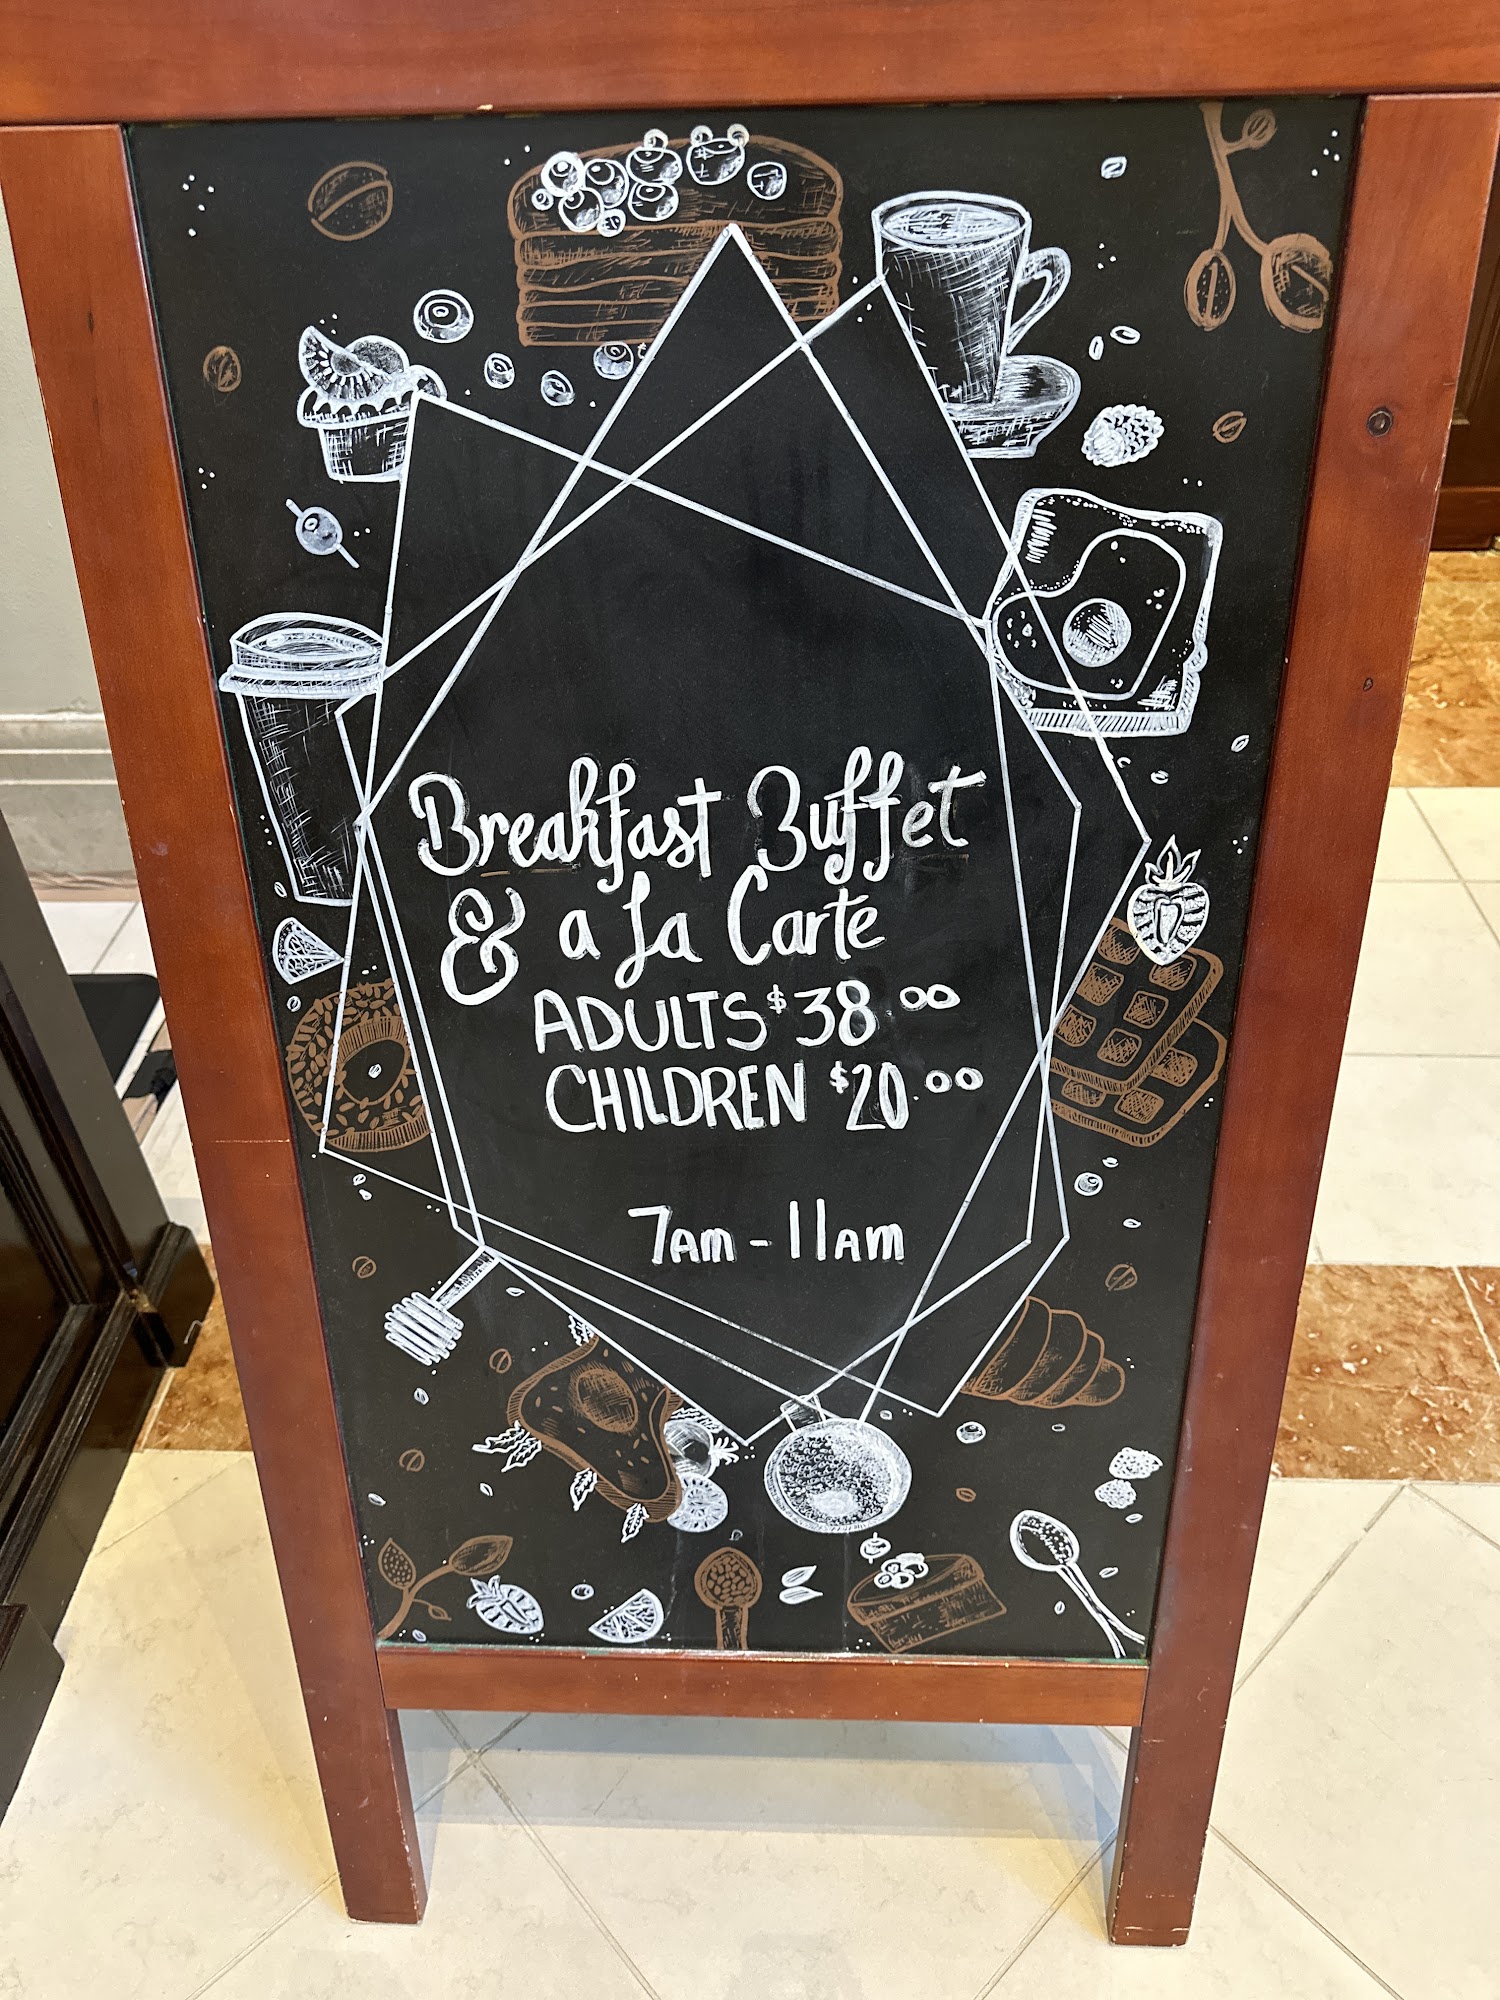 Breakfast Buffet
& a La Carte
ADULTS $38.00
CHILDREN $20.00
7AM - 11AM